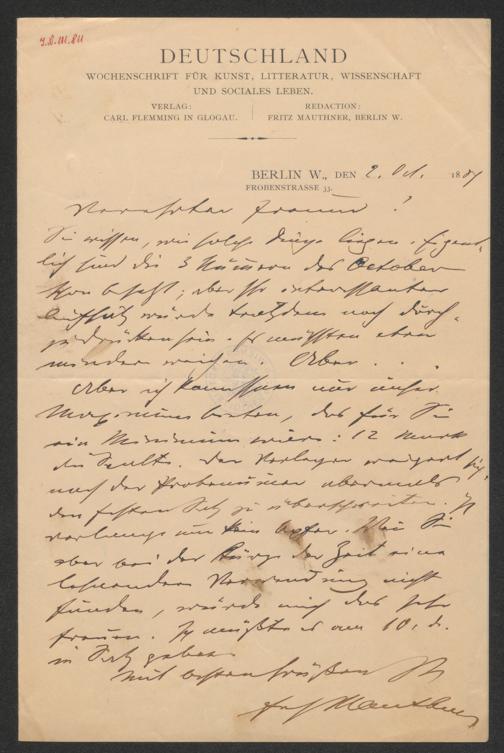 J.N. 
DEUTSCHLAND
WOCHENSCHRIFT FÜR KUNST, LITTERATUR, WISSENSCHAFT
UND SOCIALES LEBEN.
VERLAG:
CARL FLEMMING IN GLOGAU.
REDACTION:
FRITZ MAUTHNER, BERLIN W.
BERLIN W., DEN 2. Oct. 1889
FROBENSTRASSE 33.
Verehrter Freund!
Sie wissen, wie solche Dinge liegen. Eigent-
lich sind die 3 Numern des October
schon besetzt; aber Ihr interessanter
Aufsatz würde trotzdem noch durch-
zudrücken sein. Es müßten eben
andere weichen. Aber . . .
Aber ich kann Ihnen nur unser
Maximum bieten, das für Sie
ein Minimum wäre: 12 Mark
die Spalte. Der Verleger weigert sich,
nach der Probenumer abermals
den festen Satz zu überschreiten. Ich
verlange um kein Opfer. Wenn Sie
aber bei der Kürze der Zeit eine
lohnendere Verwendung nicht
fänden, würde mich das sehr
freuen. Ich müßte es am 10. d.
in Satz geben.
Mit besten Grüßen Ihr
Fritz Mauthner